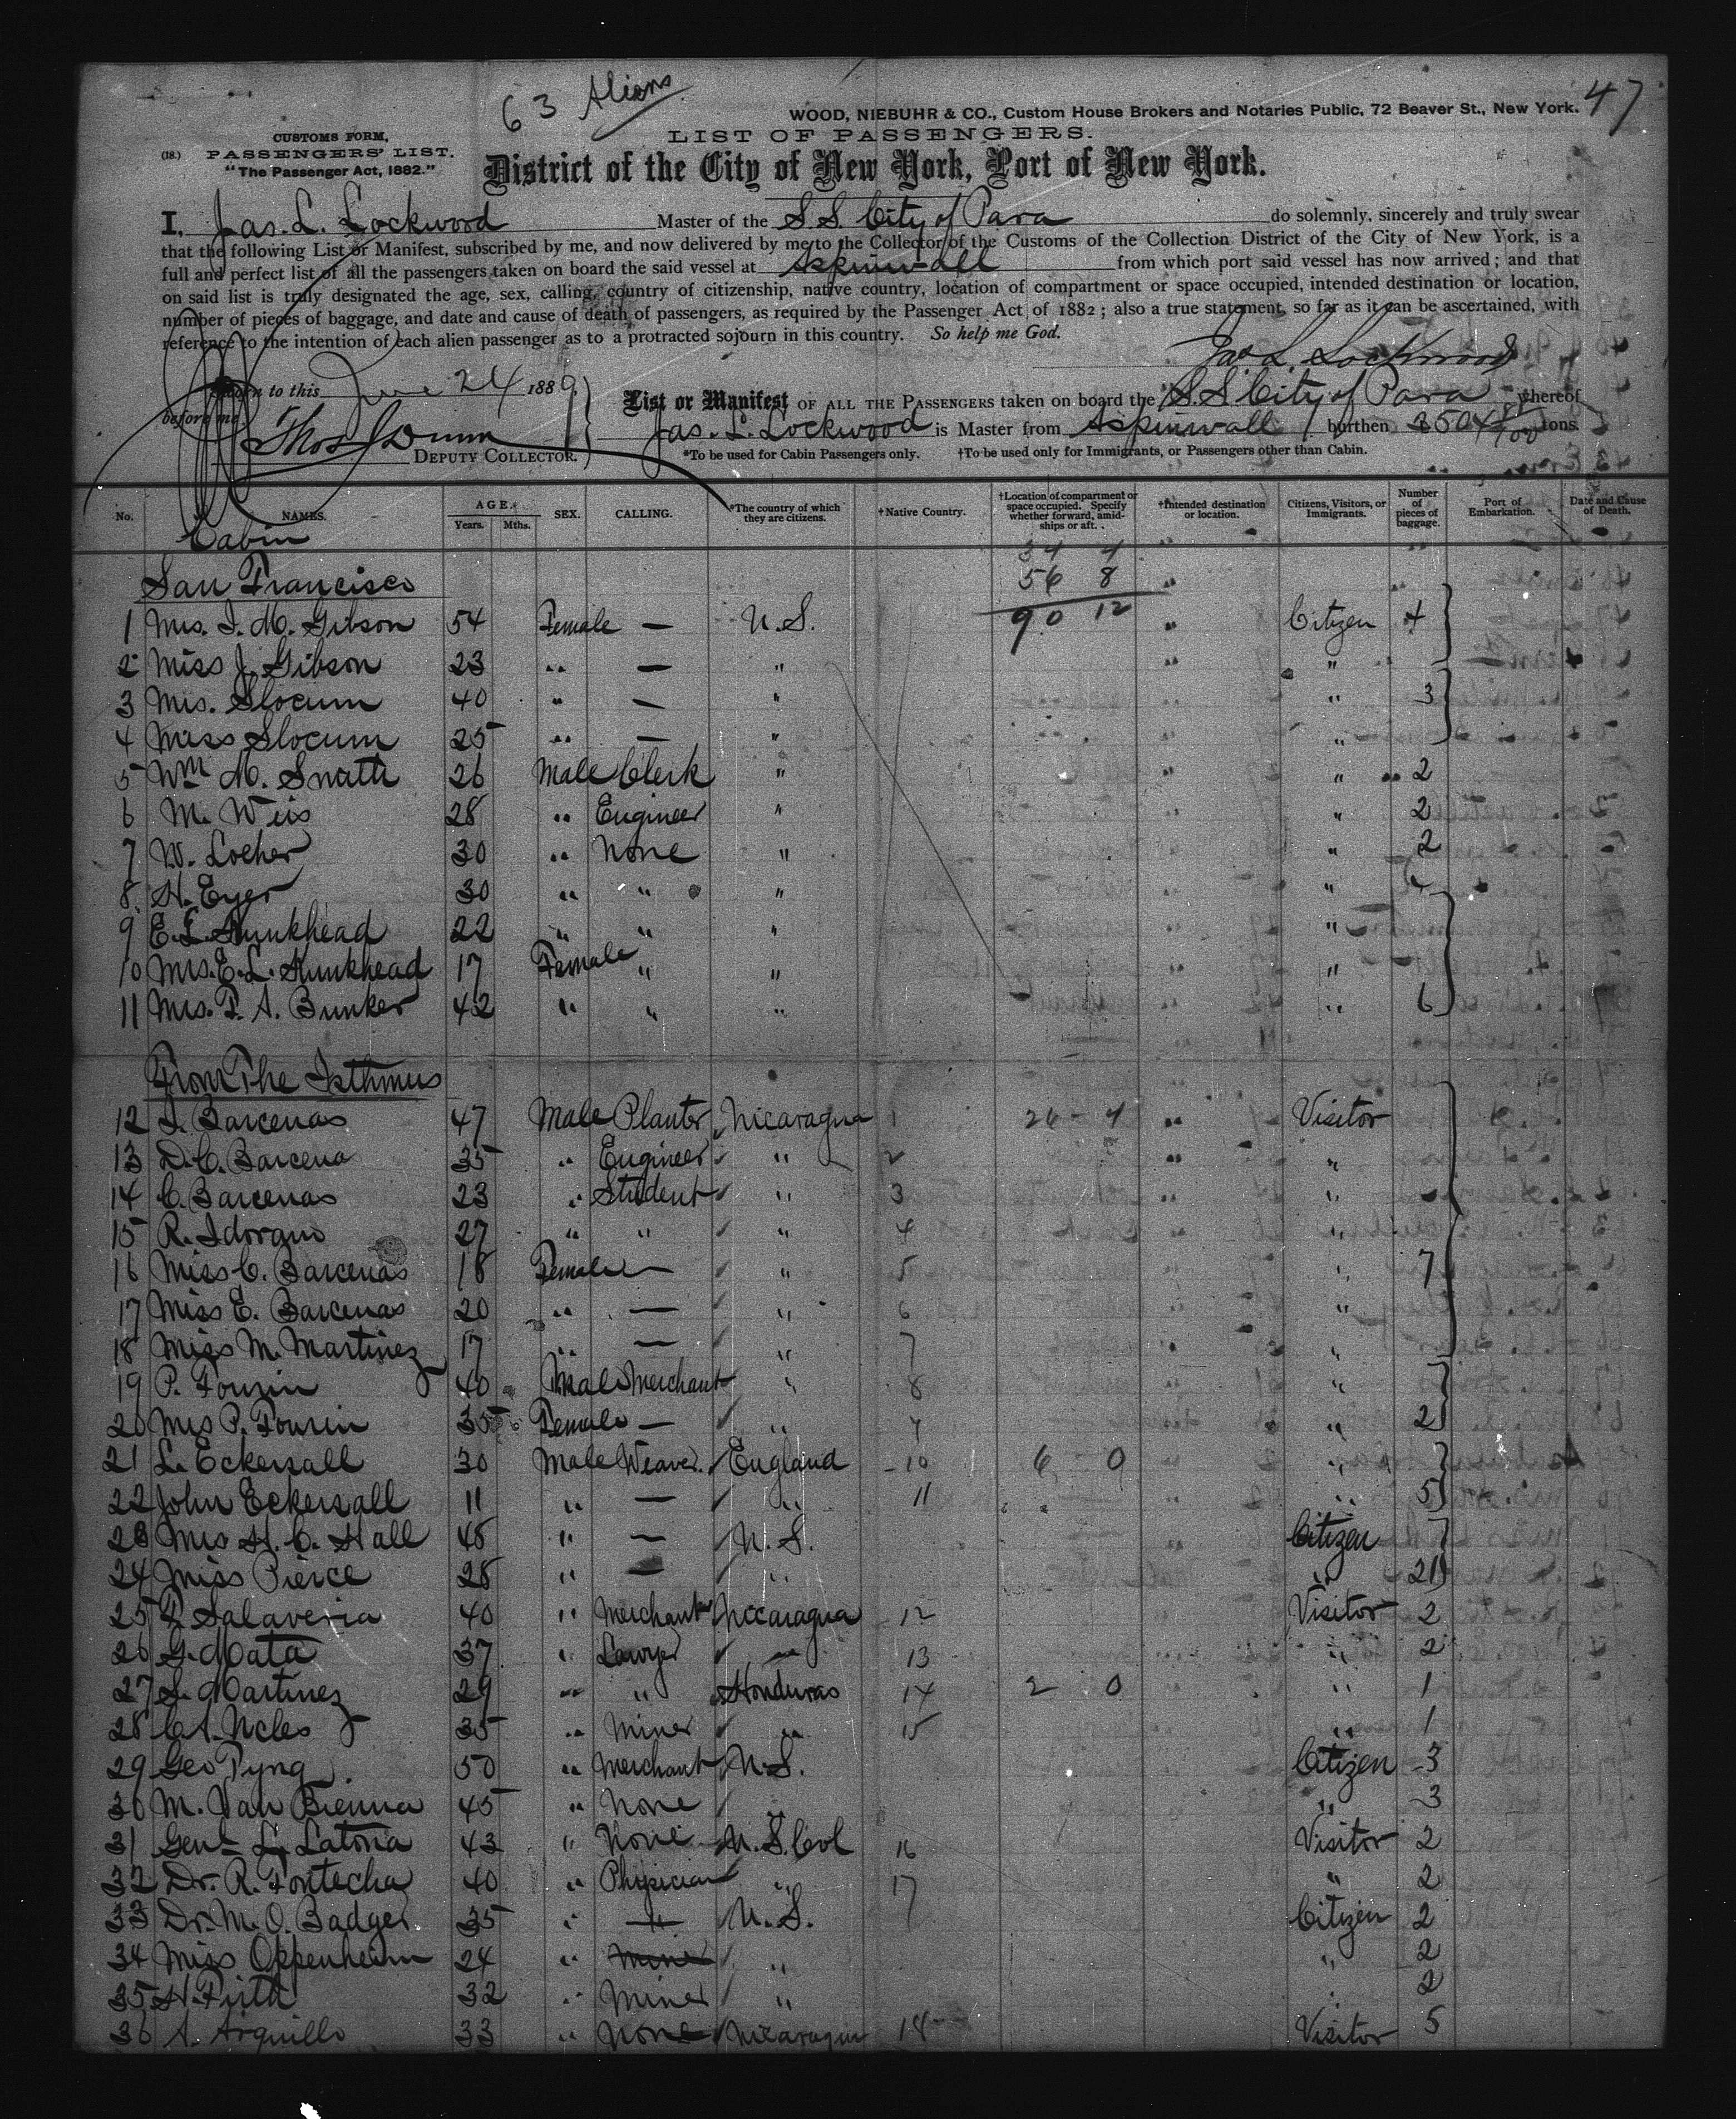 63 Aliens
47
WOOD, NIEBUHR & CO., Custom House Brokers and Notaries Public, 72 Beaver St., New York.
CUSTOMS FORM,
(18.) PASSENGERS' LIST.
"The Passenger Act, 1882."
LIST OF PASSENGERS.
District of the City of New York, Port of New York.
I, Jas. L. Lockwood Master of the S.S. City of Para do solemnly, sincerely and truly swear
that the following List or Manifest, subscribed by me, and now delivered by me to the Collector of the Customs of the Collection District of the City of New York, is a
full and perfect list of all the passengers taken on board the said vessel at Aspinwall from which port said vessel has now arrived; and that
on said list is truly designated the age, sex, calling, country of citizenship, native country, location of compartment or space occupied, intended destination or location,
number of pieces of baggage, and date and cause of death of passengers, as required by the Passenger Act of 1882; also a true statement, so far as it can be ascertained, with
reference to the intention of each alien passenger as to a protracted sojourn in this country. So help me God.
Jas L. Lockwood
Sworn to this June 24 1889
before me
Thos J Dunn
DEPUTY COLLECTOR.
List or Manifest OF ALL THE PASSENGERS taken on board the S.S. City of Para whereof
Jas. L. Lockwood is Master from Aspinwall burthen 3504 tons.
*To be used for Cabin Passengers only. †To be used only for Immigrants, or Passengers other than Cabin.
No. NAMES. AGE. Years. Mths. SEX. CALLING. *The country of which they are citizens. †Native Country. †Location of compartment or space occupied. Specify whether forward, amidships or aft. †Intended destination or location. Citizens, Visitors, or Immigrants. Number of pieces of baggage. Port of Embarkation. Date and Cause of Death.
Cabin
34 4
San Francisco 56 8
90 12
1 Mrs. I. M. Gibson 54 Female — U.S. Citizen 4
2 Miss J. Gibson 23 " — " "
3 Mrs. Slocum 40 " — " " 3
4 Miss Slocum 25 " — " "
5 Wm M. Smith 26 Male Clerk " " 2
6 M. Weis 28 " Engineer " " 2
7 W. Locher 30 " None " " 2
8 H. Eyer 30 " " " "
9 E. L. Hunkhead 22 " " " "
10 Mrs. E. L. Hunkhead 17 Female " " "
11 Mrs. P. A. Bunker 42 " " " " 6
From The Isthmus
12 J. Barcenas 47 Male Planter Nicaragua 1 26 4 Visitor
13 D. C. Barcena 35 " Engineer " 2 "
14 C. Barcenas 23 " Student " 3 "
15 R. Idorano 27 " " " 4 "
16 Miss C. Barcenas 18 Female — " 5 " 7
17 Miss E. Barcenas 20 " — " 6 "
18 Miss M. Martinez 17 " — " 7 "
19 P. Fourin 40 Male Merchant " 8 "
20 Mrs P. Fourin 35 Female — " 9 " 2
21 L. Eckersall 30 Male Weaver England 10 6 0 "
22 John Eckersall 11 " — " 11 " 5
23 Mrs H. C. Hall 45 " — U.S. Citizen
24 Miss Pierce 28 " — " " 21
25 F. Salaveria 40 " Merchant Nicaragua 12 Visitor 2
26 G. Mata 37 " Lawyer " 13 " 2
27 S. Martinez 29 " " Honduras 14 2 0 " 1
28 C. A. Ncles 35 " Miner " 15 " 1
29 Geo Tyng 50 " Merchant U.S. Citizen 3
30 M. Van Bienna 45 " None " " 3
31 Genl. L. Latona 43 " None U.S. Col 16 Visitor 2
32 Dr. R. Fontecha 40 " Physician " 17 " 2
33 Dr. M. O. Badger 35 " " U.S. Citizen 2
34 Miss Oppenheim 24 " Miner " " 2
35 H. Firth 32 " Miner " " 2
36 A. Arguello 33 " None Nicaragua 18 Visitor 5